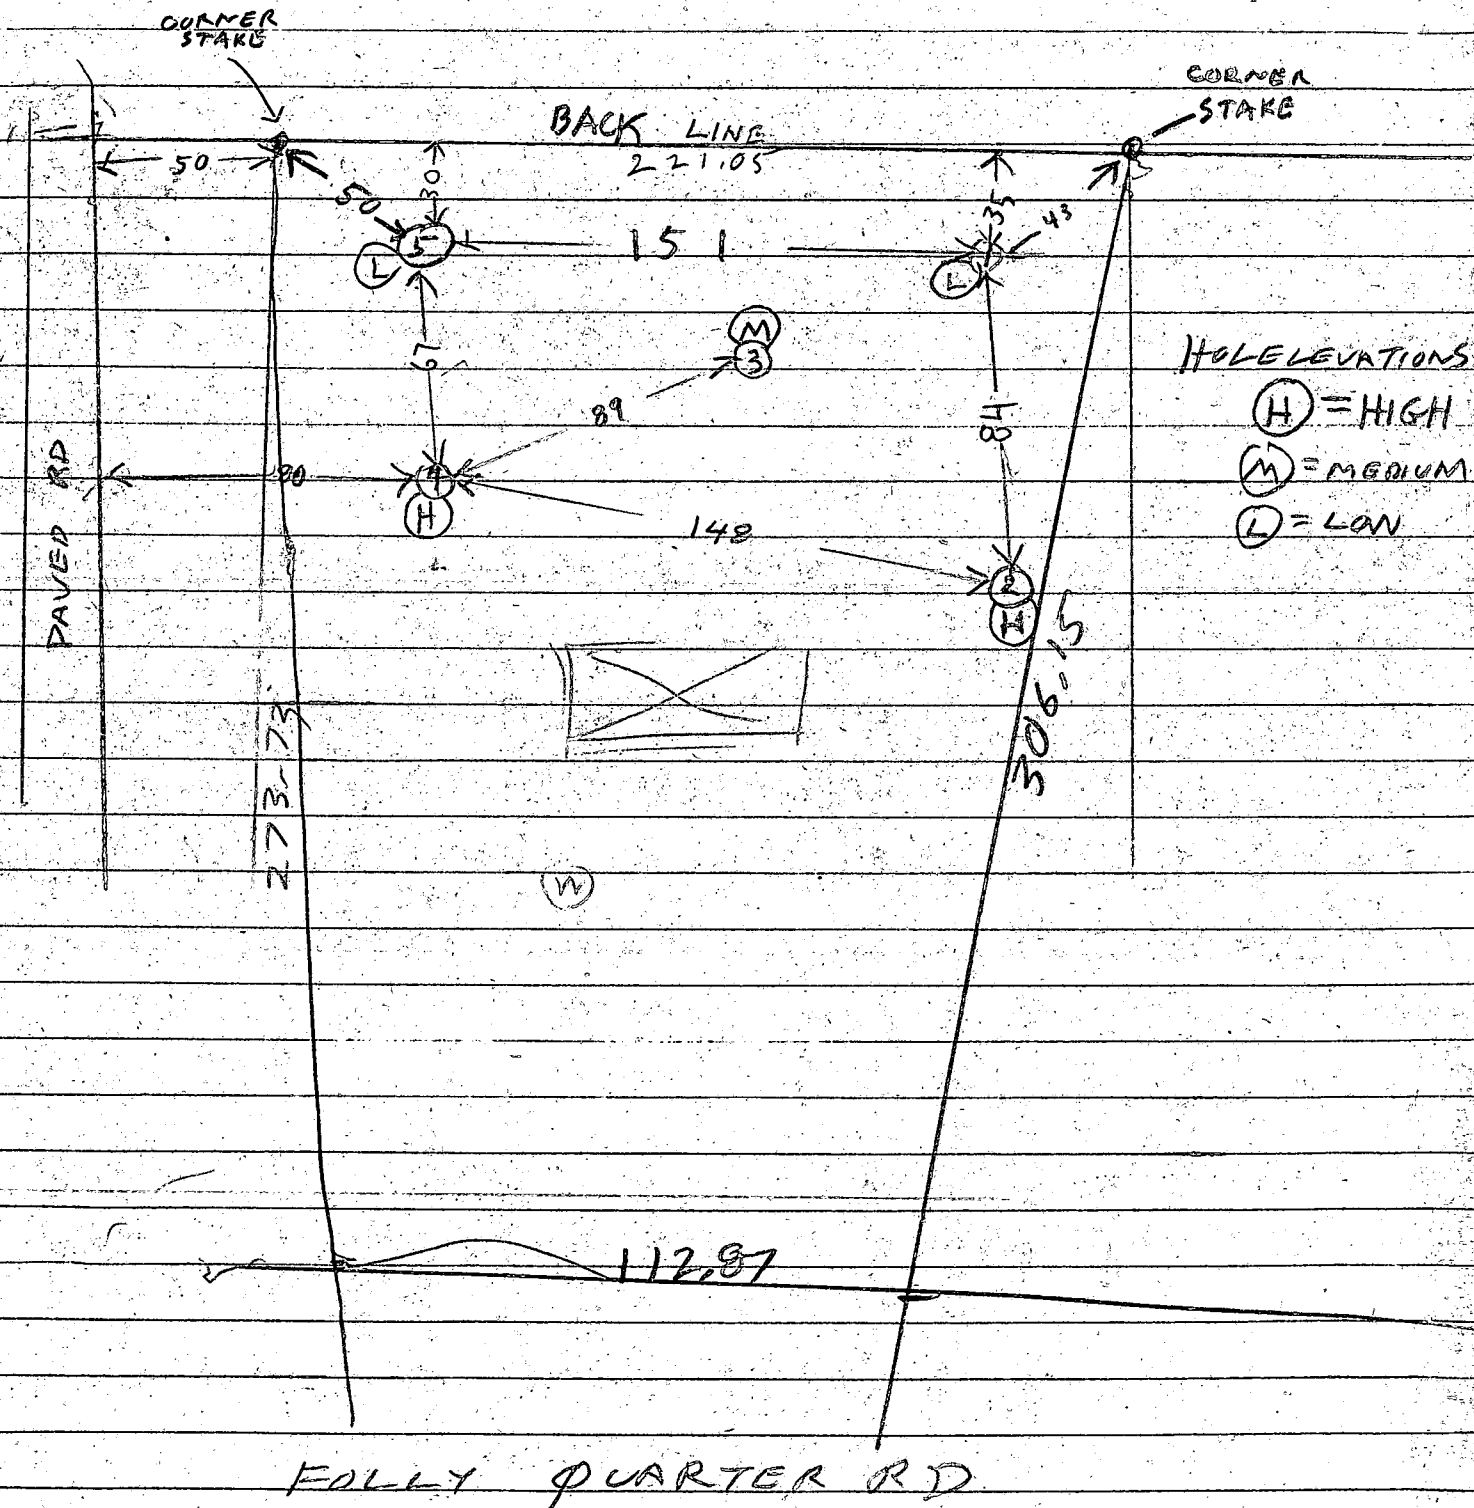 CORNER
STAKE
CORNER
STAKE
BACK LINE
221.05
50
50
30
35
43
5
151
L
L
M
3
67
89
84
HOLE ELEVATIONS
H = HIGH
M = MEDIUM
L = LOW
PAVED RD
80
4
H
148
2
H
306.15
273.73
W
112.87
FOLLY QUARTER RD